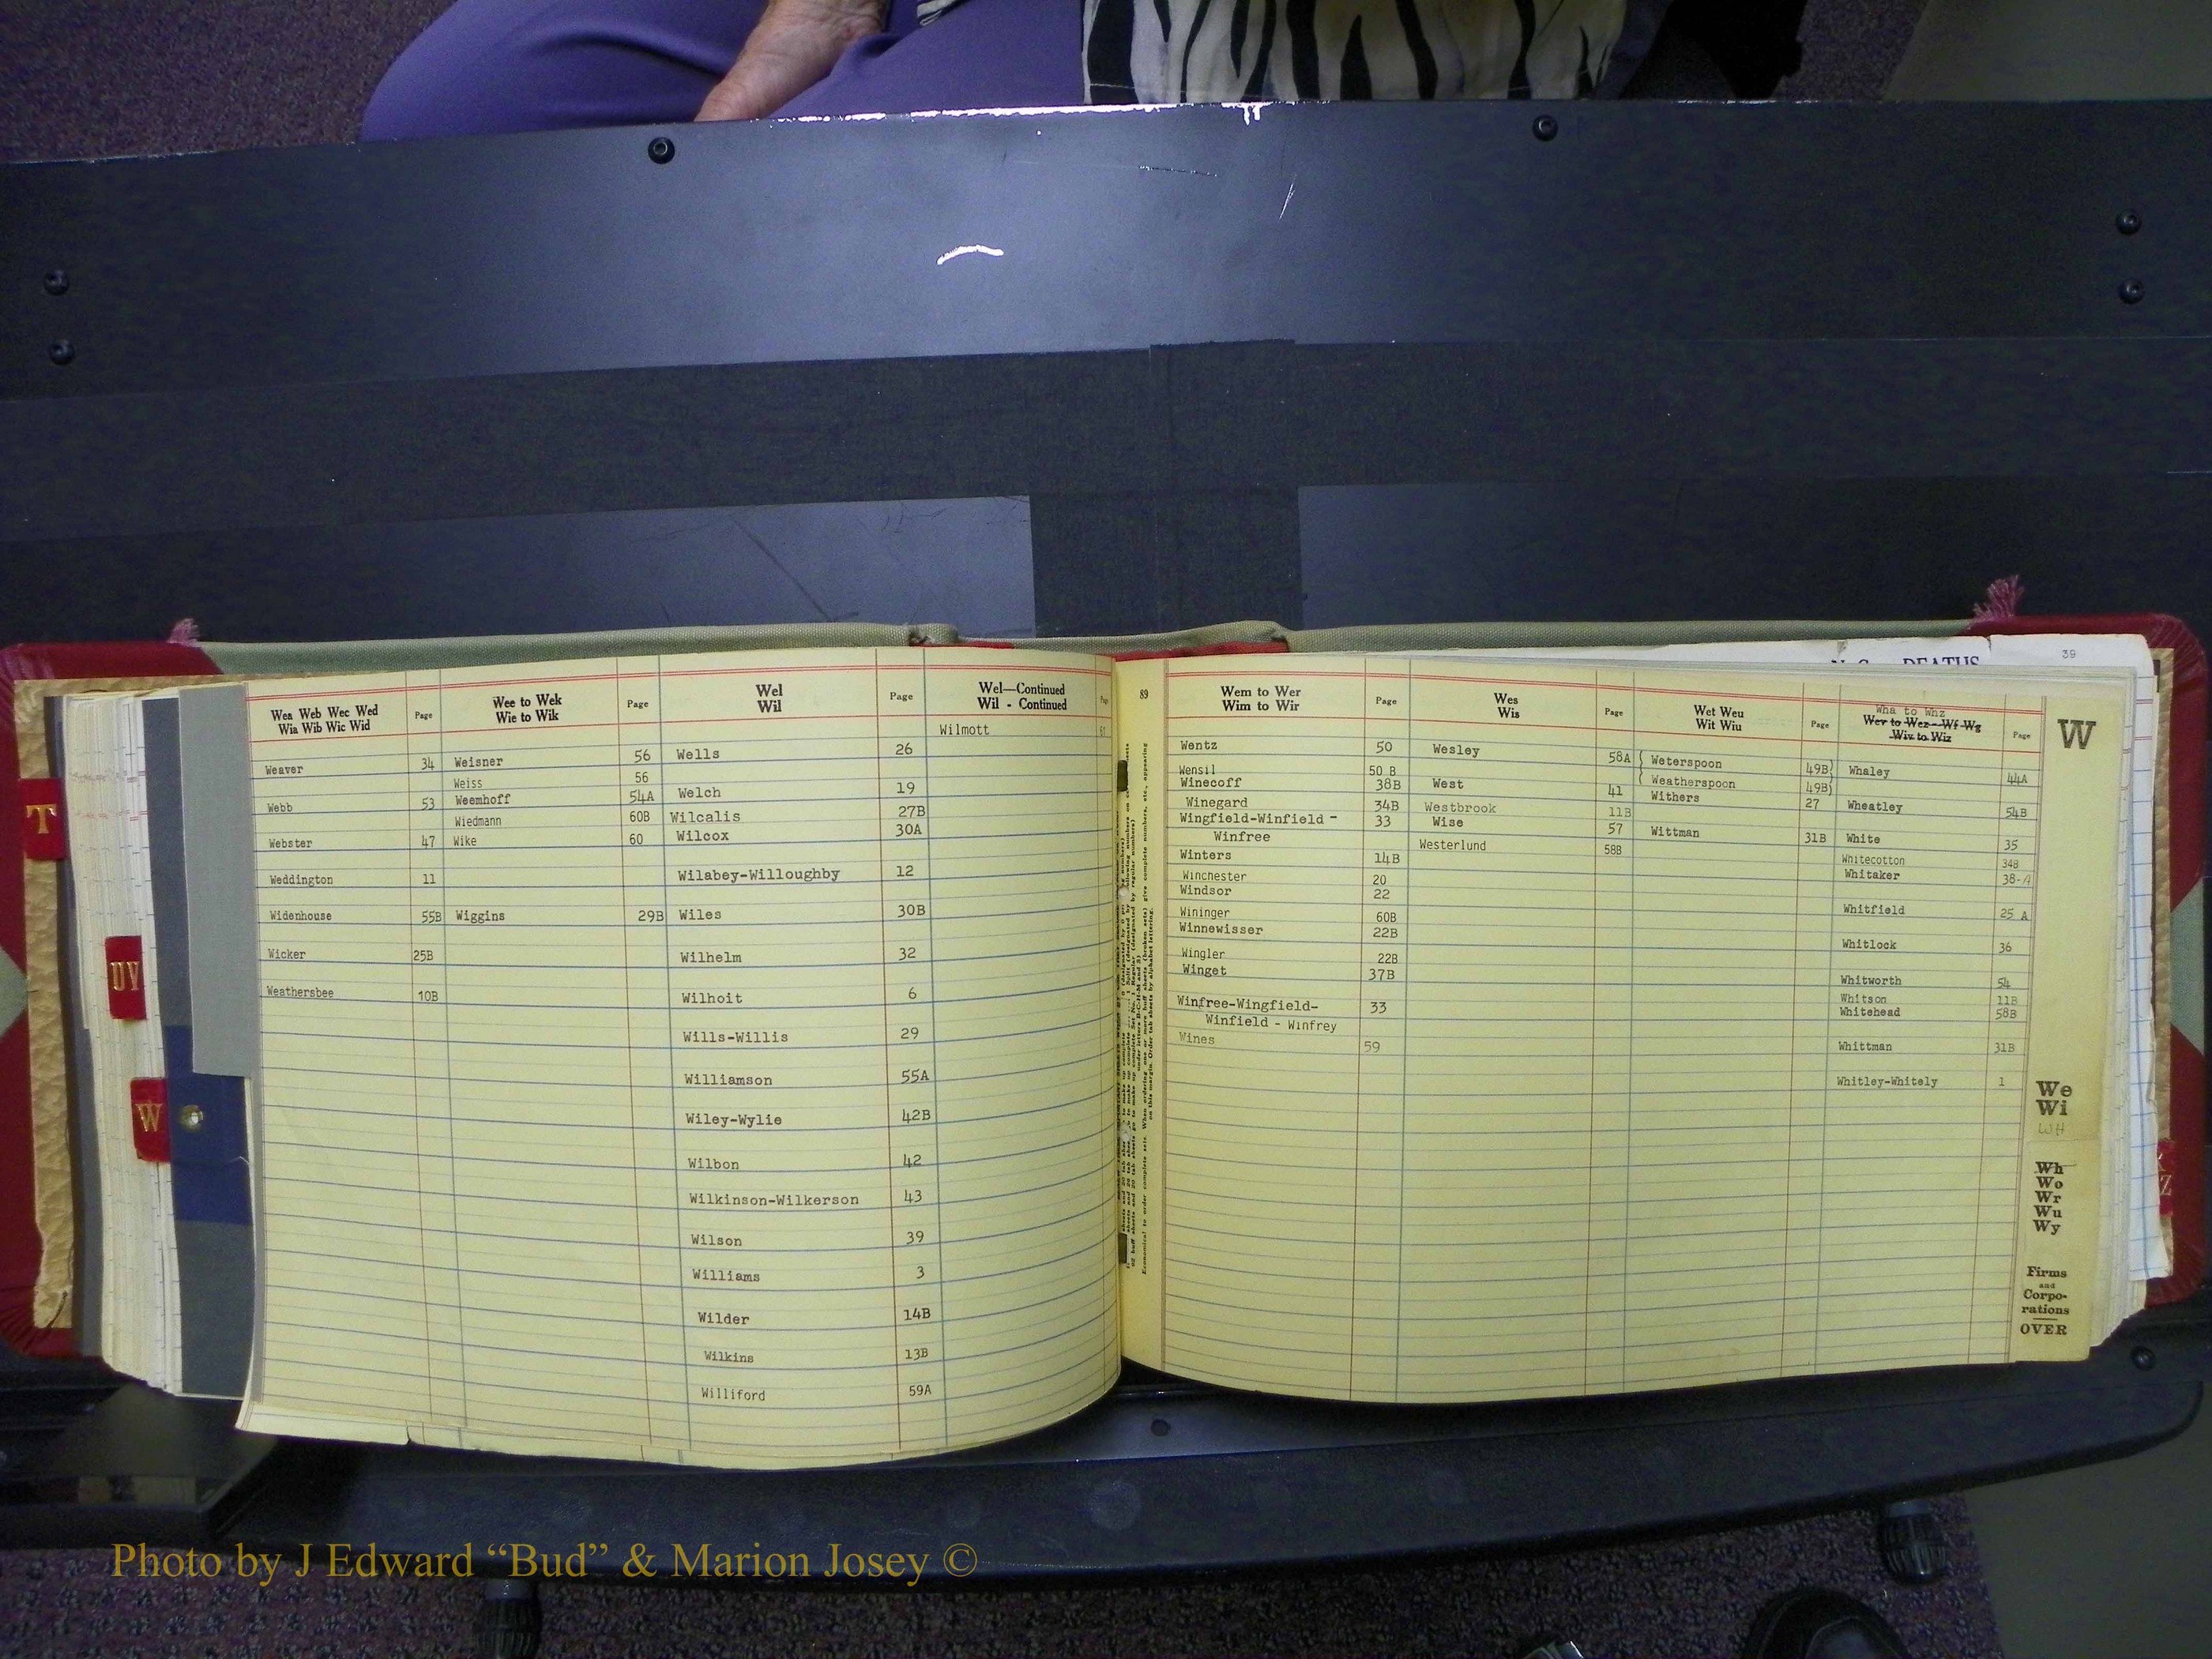 Wea Web Wec Wed
Wia Wib Wic Wid
Page
Weaver 34
Webb 53
Webster 47
Weddington 11
Widenhouse 55B
Wicker 25B
Weathersbee 10B
Wee to Wek
Wie to Wik
Page
Weisner 56
Weiss 56
Weemhoff 54A
Wiedmann 60B
Wike 60
Wiggins 29B
Wel
Wil
Page
Wells 26
Welch 19
Wilcalis 27B
Wilcox 30A
Wilabey-Willoughby 12
Wiles 30B
Wilhelm 32
Wilhoit 6
Wills-Willis 29
Williamson 55A
Wiley-Wylie 42B
Wilbon 42
Wilkinson-Wilkerson 43
Wilson 39
Williams 3
Wilder 14B
Wilkins 13B
Williford 59A
Wel—Continued
Wil - Continued
Wilmott
89
Wem to Wer
Wim to Wir
Page
Wentz 50
Wensil 50 B
Winecoff 38B
Winegard 34B
Wingfield-Winfield - 33
Winfree
Winters 14B
Winchester 20
Windsor 22
Wininger 60B
Winnewisser 22B
Wingler 22B
Winget 37B
Winfree-Wingfield- 33
Winfield - Winfrey
Wines 59
Wes
Wis
Page
Wesley 58A
West 41
Westbrook 11B
Wise 57
Westerlund 58B
Wet Weu
Wit Wiu
Page
( Weterspoon 49B)
( Weatherspoon 49B)
Withers 27
Wittman 31B
Wha to Whz
Wev to Wez—Wf Wg
Wiv to Wiz
Page
Whaley 44A
Wheatley 54B
White 35
Whitecotton 34B
Whitaker 38-A
Whitfield 25 A
Whitlock 36
Whitworth 54
Whitson 11B
Whitehead 58B
Whittman 31B
Whitley-Whitely 1
DEATHS
39
W
We
Wi
WH
Wh
Wo
Wr
Wu
Wy
Firms
and
Corpo-
rations
OVER
T
UV
W
Z
Photo by J Edward “Bud” & Marion Josey ©